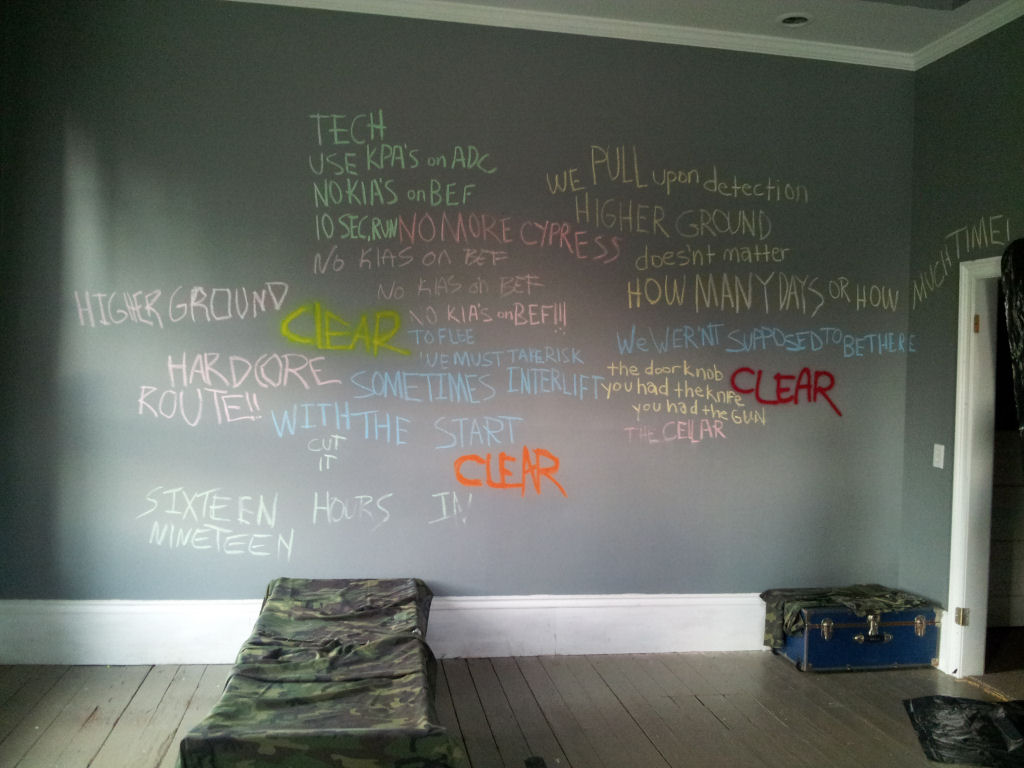 TECH
USE KPA'S on ADC
NO KIA'S on BEF
10 SEC, RUN
NO MORE CYPRESS
NO KIAS on BEF
NO KIAS on BEF
NO KIA'S on BEF!!!
HIGHER GROUND
CLEAR
HARDCORE
ROUTE!!
TO FLEE
'VE MUST TAKE RISK
SOMETIMES INTERLIFT
WITH THE START
CUT
IT
CLEAR
SIXTEEN HOURS IN
NINETEEN
WE PULL upon detection
HIGHER GROUND
doesn't matter
HOW MANY DAYS OR HOW MUCH TIME!
WE WER'NT SUPPOSED TO BE THERE
the door knob
you had the knife
you had the GUN
THE CELLAR
CLEAR